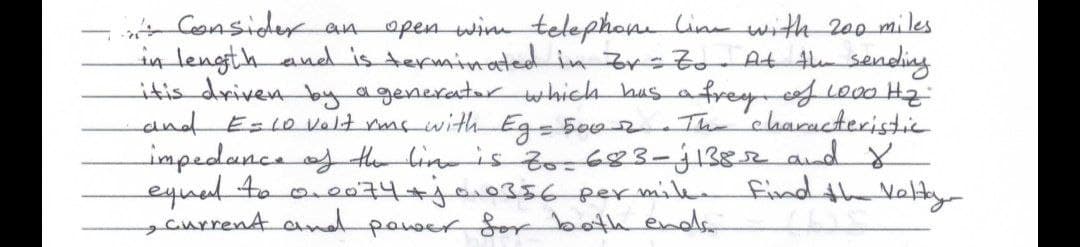 Consider an open wire telephone line with 200 miles
in length and is terminated in Zr = Zo. At the sending
itis driven by a generator which has a freq. of 1000 Hz
and E=10 volt rms with Eg = 500 Ω. The characteristic
impedance of the line is Zo = 683-j138 Ω and γ
equal to 0.0074+j0.0356 per mile. Find the Voltage
, current and power for both ends.